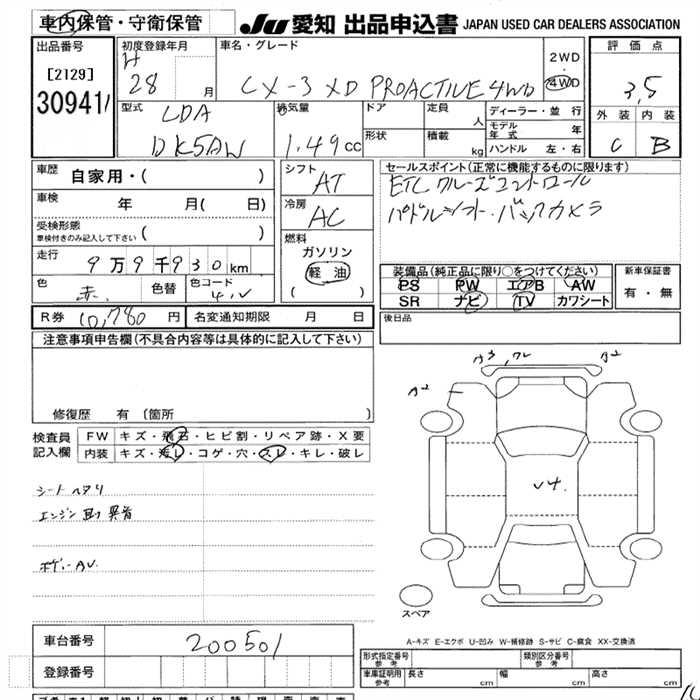 車内保管・守衛保管
JU 愛知 出品申込書 JAPAN USED CAR DEALERS ASSOCIATION
出品番号
[2129]
30941
初度登録年月
H 28 月
車名・グレード
CX-3 XD PROACTIVE 4WD
2WD
・
4WD
評価点
3,5
外装 内装
C B
型式
LDA
DK5AW
排気量
1.49 cc
ドア
形状
定員 人
積載 kg
ディーラー・並行
モデル年式 年
ハンドル 左・右
車歴 自家用・( )
車検 年 月( 日)
受検形態
車検付きのみ記入して下さい ( )
走行 9万9千930km
色 赤
色替
色コード 41V
シフト
AT
冷房
AC
燃料
ガソリン
軽油
( )
セールスポイント(正常に機能するものに限ります)
ETC クルーズコントロール
パドルシフト・バックカメラ
装備品(純正品に限り○をつけてください)
PS PW エアB AW
SR ナビ TV カワシート
新車保証書
有・無
R券 10,780 円
名変通知期限 月 日
後日品
注意事項申告欄(不具合内容等は具体的に記入して下さい)
修復歴 有 [箇所 ]
検査員
記入欄
FW キズ・飛石・ヒビ割・リペア跡・X要
内装 キズ・汚レ・コゲ・穴・スレ・キレ・破レ
シートヘタリ
エンジン 異音
ボデーAU
A3,
A2
A2
U4.
スペア
A-キズ E-エクボ U-凹み W-補修跡 S-サビ C-腐食 XX-交換済
車台番号 200501
登録番号
形式指定番号
参考
類別区分番号
参考
車庫証明用
参考
長さ cm
幅 cm
高さ cm